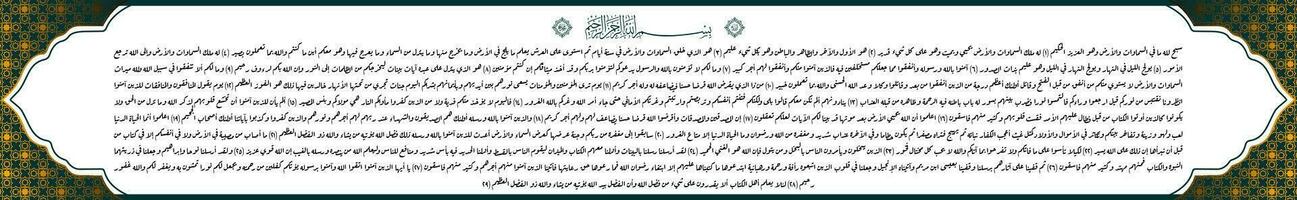 بسم الله الرحمن الرحيم
سبح لله ما في السماوات والأرض وهو العزيز الحكيم (١) له ملك السماوات والأرض يحيي ويميت وهو على كل شيء قدير (٢) هو الأول والآخر والظاهر والباطن وهو بكل شيء عليم (٣) هو الذي خلق السماوات والأرض في ستة أيام ثم استوى على العرش يعلم ما يلج في الأرض وما يخرج منها وما ينزل من السماء وما يعرج فيها وهو معكم أين ما كنتم والله بما تعملون بصير (٤) له ملك السماوات والأرض وإلى الله ترجع
الأمور (٥) يولج الليل في النهار ويولج النهار في الليل وهو عليم بذات الصدور (٦) آمنوا بالله ورسوله وأنفقوا مما جعلكم مستخلفين فيه فالذين آمنوا منكم وأنفقوا لهم أجر كبير (٧) وما لكم لا تؤمنون بالله والرسول يدعوكم لتؤمنوا بربكم وقد أخذ ميثاقكم إن كنتم مؤمنين (٨) هو الذي ينزل على عبده آيات بينات ليخرجكم من الظلمات إلى النور وإن الله بكم لرءوف رحيم (٩) وما لكم ألا تنفقوا في سبيل الله ولله ميراث
السماوات والأرض لا يستوي منكم من أنفق من قبل الفتح وقاتل أولئك أعظم درجة من الذين أنفقوا من بعد وقاتلوا وكلا وعد الله الحسنى والله بما تعملون خبير (١٠) من ذا الذي يقرض الله قرضا حسنا فيضاعفه له وله أجر كريم (١١) يوم ترى المؤمنين والمؤمنات يسعى نورهم بين أيديهم وبأيمانهم بشراكم اليوم جنات تجري من تحتها الأنهار خالدين فيها ذلك هو الفوز العظيم (١٢) يوم يقول المنافقون والمنافقات للذين آمنوا
انظرونا نقتبس من نوركم قيل ارجعوا وراءكم فالتمسوا نورا فضرب بينهم بسور له باب باطنه فيه الرحمة وظاهره من قبله العذاب (١٣) ينادونهم ألم نكن معكم قالوا بلى ولكنكم فتنتم أنفسكم وتربصتم وارتبتم وغرتكم الأماني حتى جاء أمر الله وغركم بالله الغرور (١٤) فاليوم لا يؤخذ منكم فدية ولا من الذين كفروا مأواكم النار هي مولاكم وبئس المصير (١٥) ألم يأن للذين آمنوا أن تخشع قلوبهم لذكر الله وما نزل من الحق ولا
يكونوا كالذين أوتوا الكتاب من قبل فطال عليهم الأمد فقست قلوبهم وكثير منهم فاسقون (١٦) اعلموا أن الله يحيي الأرض بعد موتها قد بينا لكم الآيات لعلكم تعقلون (١٧) إن المصدقين والمصدقات وأقرضوا الله قرضا حسنا يضاعف لهم ولهم أجر كريم (١٨) والذين آمنوا بالله ورسله أولئك هم الصديقون والشهداء عند ربهم لهم أجرهم ونورهم والذين كفروا وكذبوا بآياتنا أولئك أصحاب الجحيم (١٩) اعلموا أنما الحياة الدنيا
لعب ولهو وزينة وتفاخر بينكم وتكاثر في الأموال والأولاد كمثل غيث أعجب الكفار نباته ثم يهيج فتراه مصفرا ثم يكون حطاما وفي الآخرة عذاب شديد ومغفرة من الله ورضوان وما الحياة الدنيا إلا متاع الغرور (٢٠) سابقوا إلى مغفرة من ربكم وجنة عرضها كعرض السماء والأرض أعدت للذين آمنوا بالله ورسله ذلك فضل الله يؤتيه من يشاء والله ذو الفضل العظيم (٢١) ما أصاب من مصيبة في الأرض ولا في أنفسكم إلا في كتاب من
قبل أن نبرأها إن ذلك على الله يسير (٢٢) لكيلا تأسوا على ما فاتكم ولا تفرحوا بما آتاكم والله لا يحب كل مختال فخور (٢٣) الذين يبخلون ويأمرون الناس بالبخل ومن يتول فإن الله هو الغني الحميد (٢٤) لقد أرسلنا رسلنا بالبينات وأنزلنا معهم الكتاب والميزان ليقوم الناس بالقسط وأنزلنا الحديد فيه بأس شديد ومنافع للناس وليعلم الله من ينصره ورسله بالغيب إن الله قوي عزيز (٢٥) ولقد أرسلنا نوحا وإبراهيم وجعلنا في ذريتهما
النبوة والكتاب فمنهم مهتد وكثير منهم فاسقون (٢٦) ثم قفينا على آثارهم برسلنا وقفينا بعيسى ابن مريم وآتيناه الإنجيل وجعلنا في قلوب الذين اتبعوه رأفة ورحمة ورهبانية ابتدعوها ما كتبناها عليهم إلا ابتغاء رضوان الله فما رعوها حق رعايتها فآتينا الذين آمنوا منهم أجرهم وكثير منهم فاسقون (٢٧) يا أيها الذين آمنوا اتقوا الله وآمنوا برسوله يؤتكم كفلين من رحمته ويجعل لكم نورا تمشون به ويغفر لكم والله غفور
رحيم (٢٨) لئلا يعلم أهل الكتاب ألا يقدرون على شيء من فضل الله وأن الفضل بيد الله يؤتيه من يشاء والله ذو الفضل العظيم (٢٩)